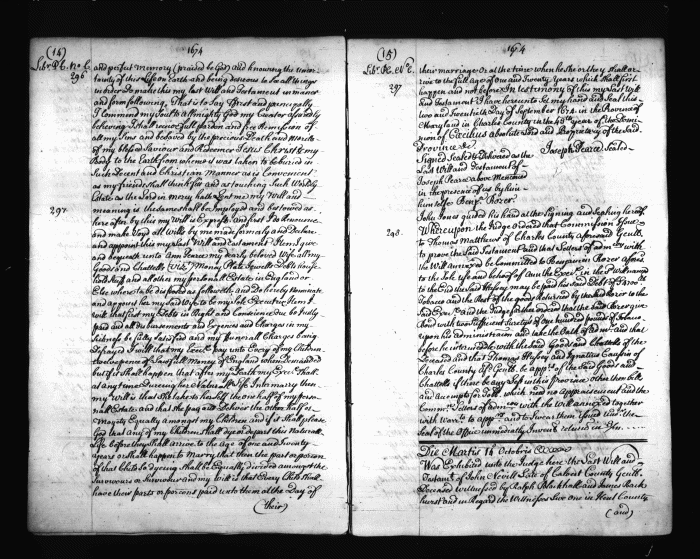 (14)
1674
Liber P.C. No. C.
296
and perfect memory (praised be God) and knowing the uncer-
tainty of this Life on Earth and being desirous to see all things
in order Do make this my last Will and Testament in manner
and form following. That is to say First and principally
I Commend my Soul to Almighty God my Creator assuredly
believing I shall receive full pardon and free Remission of
all my Sins and be saved by the precious Death and Merits
of my blessed Saviour and Redeemer Jesus Christ & my
Body to the Earth from whence it was taken to be buried in
Such Decent and Christian Manner as is Convenient
as my friends shall think fit and as touching Such Worldly
Estate as the Lord in mercy hath Lent me my Will and
297.
meaning is the same shall be Employed and bestowed as
here after by this my Will is Exprest and first I do Renounce
and make Void all Wills by me made formerly and Declare
and appoint this my Last Will and Testament Item I give
and bequeath unto Ann Pearce my dearly beloved Wife all my
Goods and Chattells (Viz) Money Plate Jewells Debts House-
hold Stuff and all other my personal Estate in England or
Else where to be disposed as followeth and Do hereby nominate
and appoint her my said Wife to be my sole Executrix Item I
will that first my Debts in Right and Conscience Due be fully
paid and all disbursements and Expences and Charges in my
Sickness be fully Satisfied and my funerall Charges being
Defrayed I will that my Exec. pay unto Every of my Children
twelve pence of Lawfull Money of England when Demanded
but if it shall happen that after my Death my Exec. shall
at any time During her Natural Life Intermarry then
my Will is that She take to herself the one half of my perso-
nal Estate and that she pay and Deliver the other half of
Majesty Equally amongst my Children and if it shall please
God that any of my Children shall dye and depart this Natural
Life before they shall arrive to the Age of one and twenty
years or shall happen to Marry that then the part or portion
of that Child so dyeing shall be Equally divided amongst the
Survivours or Survivour and my will is that Every Child shall
have their parts or porcons paid unto them at the Day of
(their)
(15)
1674
Liber P.C. No. C.
297
their marriage Or at the time when he She or they shall ar-
rive to the full Age of one and Twenty Years which shall first
happen and not before In testimony of this my Last Will
and Testament I have hereunto Set my hand and Seal this
two and Twentieth Day of September 1674 in the Province of
Maryland in Charles County in the 43rd year of the Domi-
nion of Cæcilius Absolute Lord and Proprietary of the said
Province &c.
Signed Sealed & Delivered as the Joseph Pearce Seal
Last Will and Testament of
Joseph Pearce above Mentioned
in the presence of us by him
himselfe Benj. Rozer.
John Jones guided his hand at the Signing and Sealing hereof.
298.
Whereupon the Judge Ordered that Commission Issue
to Thomas Matthews of Charles County aforesaid Gentl.
to prove the said Testament and that Letters of adm. with
the Will annexed be Committed to Benjamin Rozer aforesd
to the sole use and behoof of Ann the Exec. for the Paymt
to the End the said might be paid his said Debt of 14700
Tobacco and the Rest of the goods Returned by the said Rozer to the
said Exec. and the Judge further ordered that the said Rozer give
Bond with two sufficient Suretys of one hundred pound of Tobacco
upon his administration and take the Oath of adm. and that
before he intermeddle with the said Goods and Chattells of the
Deceased and that Thomas Hussey and Ignatius Causin of
Charles County aforsd Gentl. be app. of the said Goods and
Chattells if there be any Left in this province other then bills
and accompts for Tobb. which need no Appraisement and the
Comm. Letters of adm. with the Will annexed together
with Warr. to app. and to Swear them Issued und. the
Seal of the Office
Die Martis 14 Octobris
Was Exhibited unto the Judge here the Last Will and
Testamt. of John Nevill Late of Calvert County Gentl.
Deceased witnessed by Ralph Blackhall and James Back
hurst and in Regard the Witnesses Live one in Kent County
(and)